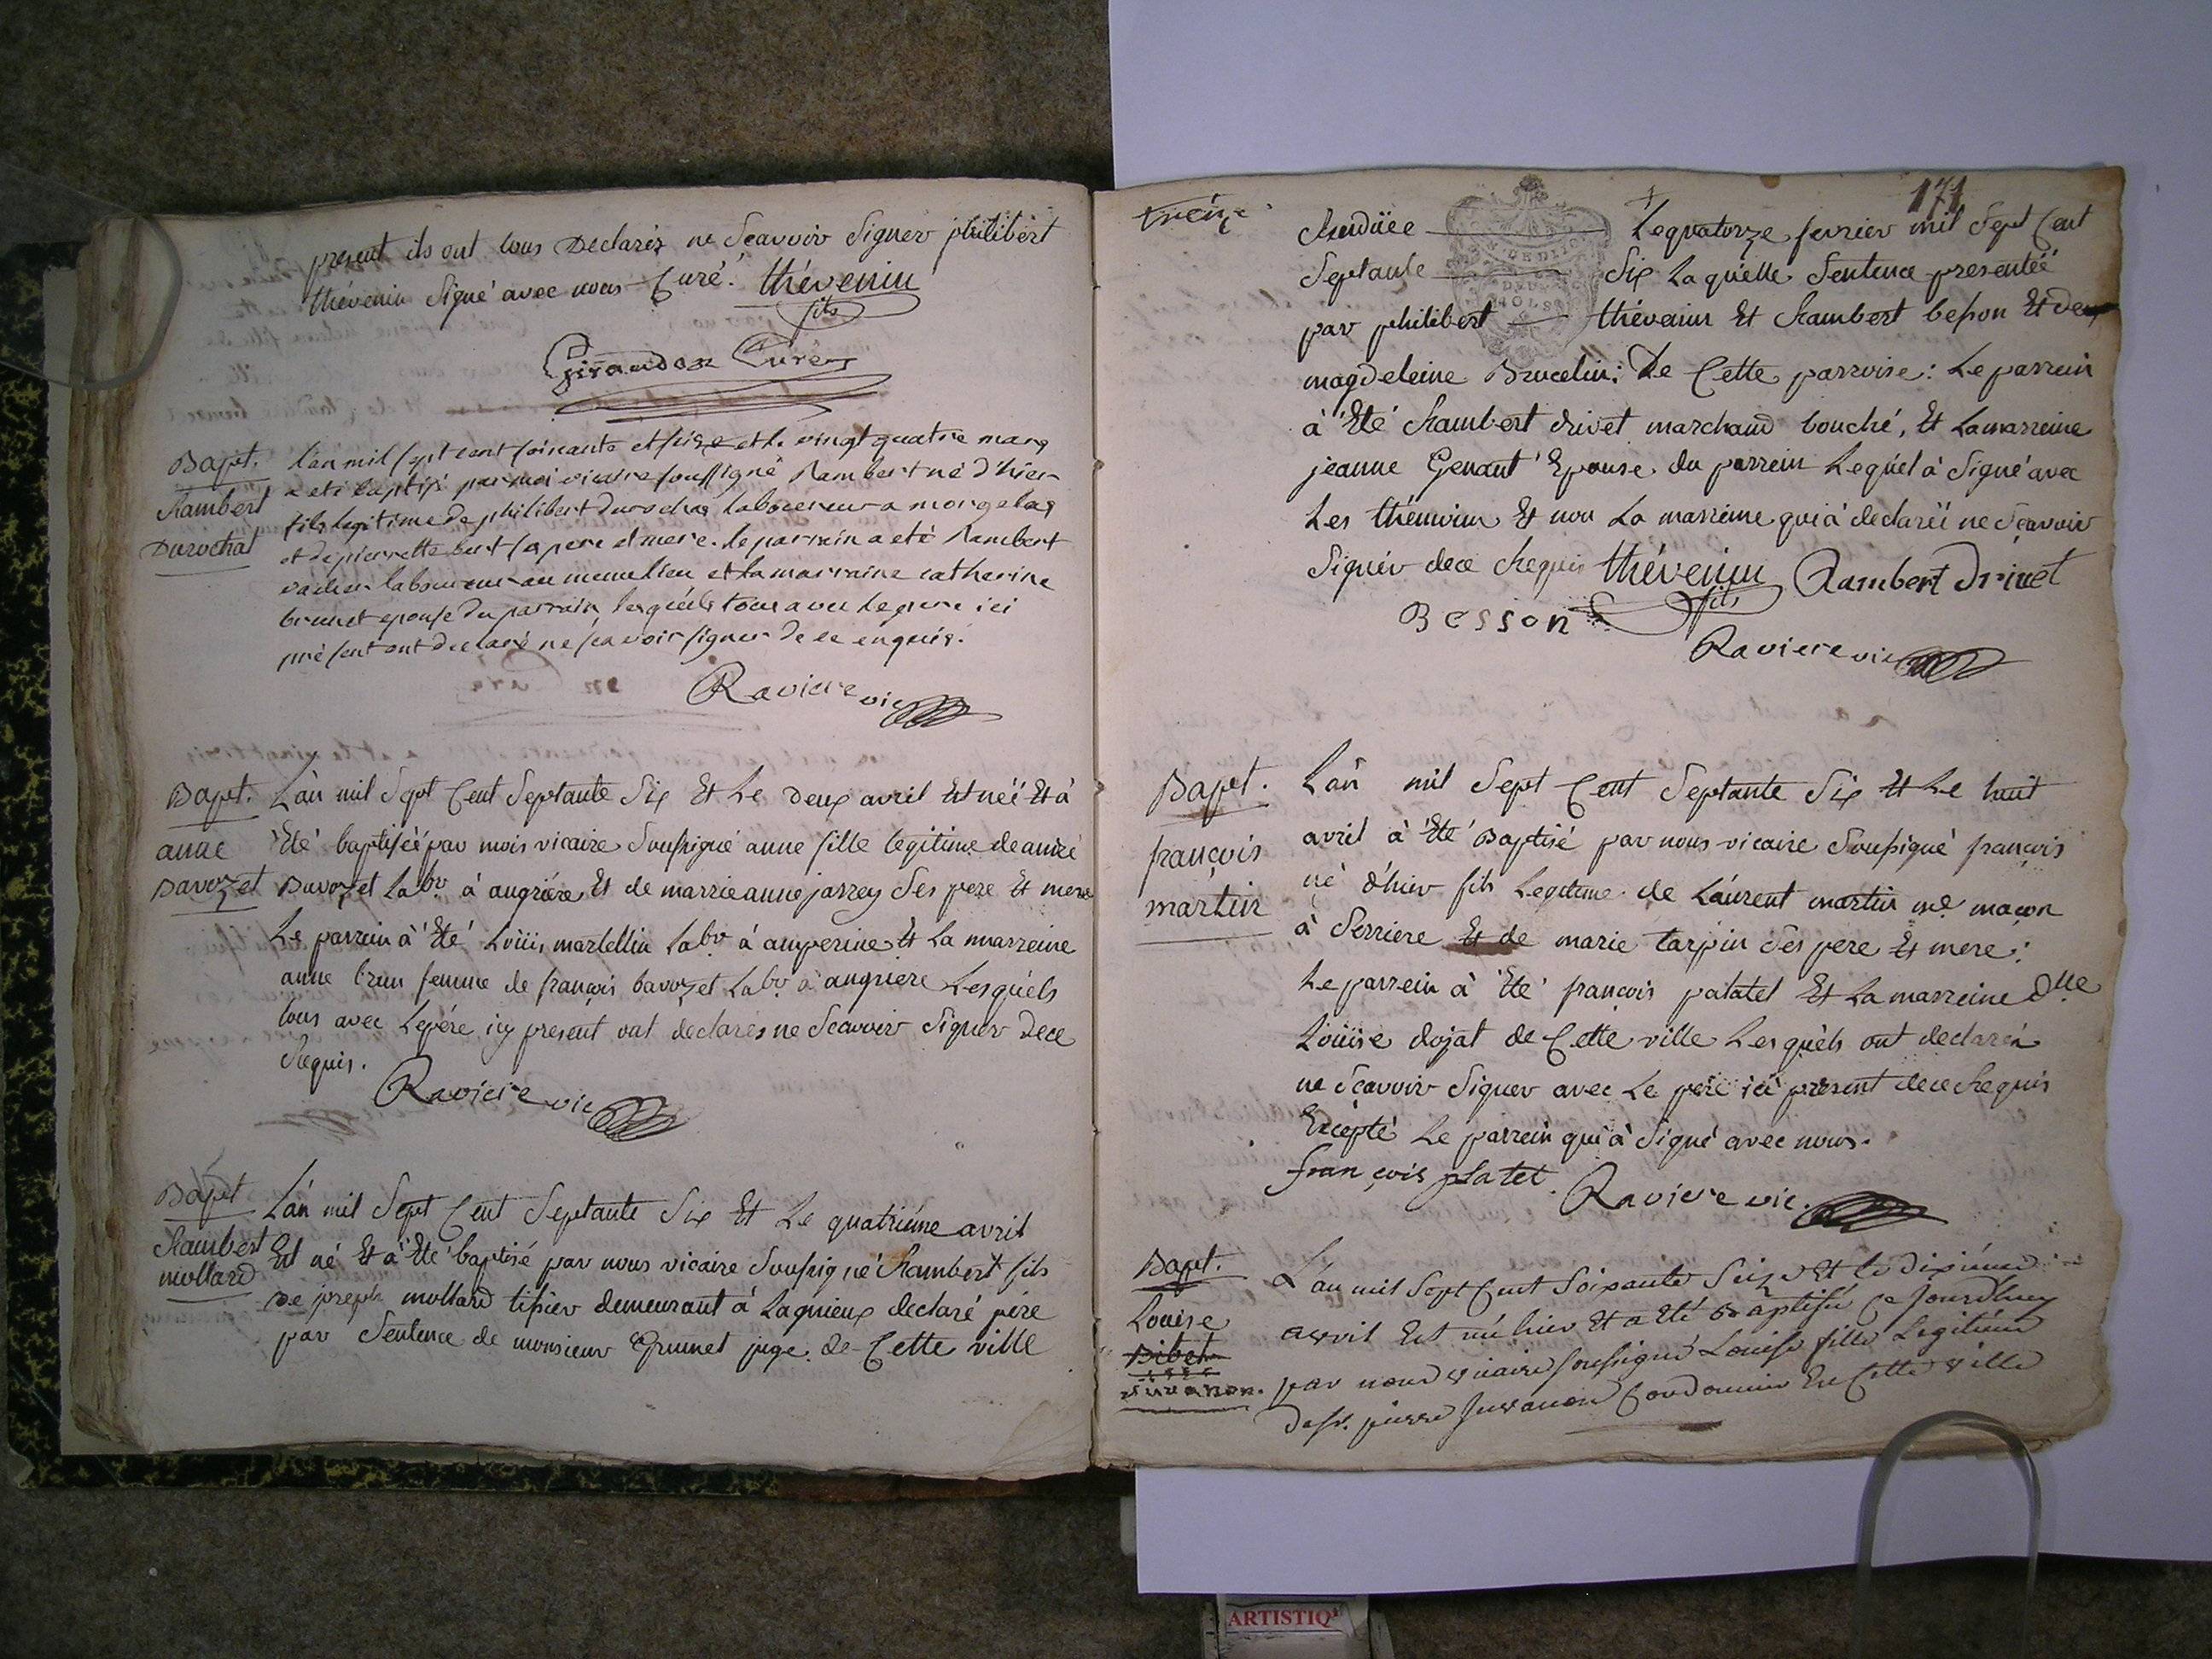 present ils ont tous Declarés ne Scavoir Signer philibért
thévenin Signé avec nous Curé. thévenin
fils
Girandon Curé
Bapt.
Rambert
Durochat
L'an mil sept cent soixante et seize et le vingt quatre mars
a eté baptisé par moi vicaire soussigné Rambert né d'hier
fils legitime de philibert durochat laboureur a morgelas
et de pierrette bert ses pere et mere. le parrain a eté Rambert
vacher laboureur au meme lieu et la marraine catherine
brunet epouse du parrain lesquels tous avec le pere ici
présent ont declaré ne sçavoir signer de ce enquis.
Raviere vic
Bapt.
anne
Bavozet
L'àn mil Sept Cent Septante Six Et Le deux avril Est néë Et à
Eté baptiséë par mois vicaire Soussigné anne fille legitime de
Bavozet Labr à angriére Et de marrie anne jarrey Ses pere Et mere
Le parrein à Eté Loüis martellin labr à amperine Et La marreine
anne brun femme de françois bavozet Labr à angriere Lesquéls
tous avec Lepére icy present ont declarés ne Scavoir Signer dece
Requis.
Raviere vic
Bapt
Rambert
mollard
L'àn mil Sept Cent Septante Six Et Le quatriéme avril
Est né Et à Eté baptisé par nous vicaire Soussigné Rambert fils
De joseph mollard tissier demeurant à Lagnieux declaré pére
par Sentence de monsieur Grumet juge de Cette ville
171
treize
Renduëe Le quatorze fevrier mil Sept Cent
Septante Six Laquélle Sentence presentéë
par philibert thévenin Et Rambert besson Et de
magdeleine Brucelin: De Cette parroise: Le parrein
à Eté Rambert drivet marchand bouché, Et La marreine
jeanne Genant Epouse du parrein Lequél à Signé avec
Les thévenin Et non La marreine qui à declaréë ne Sçavoir
Signér dece Requis thévenin Rambert Drivet
fils
Besson
Raviere vic
Bapt.
françois
martin
L'an mil Sept Cent Septante Six Et Le huit
avril à Eté Baptisé par nous vicaire Soussigné françois
né d'hier fils Legitime de Laurent martin me maçon
à Serriere Et de marie tarpin Ses pere Et mere:
Le parrein à Eté françois patatet Et La marreine dlle
Loüise dojat de Cette ville Lesquéls ont declarés
ne Sçavoir Signer avec Le pere ici présent dece Requis
Excépté Le parrein qui à Signé avec nous.
françois platet. Raviere vic.
Bapt.
Louise
Bibet
Juvanon.
L'an mil Sept Cent Soixante Seize Et le dixieme
avril Est née hier Et a Eté Baptisée Ce Jourdhuy
par nous vicaire soussigné Louise fille Legitime
de sr. pierre Juvanon Cordonnier En Cette ville
ARTISTIQ